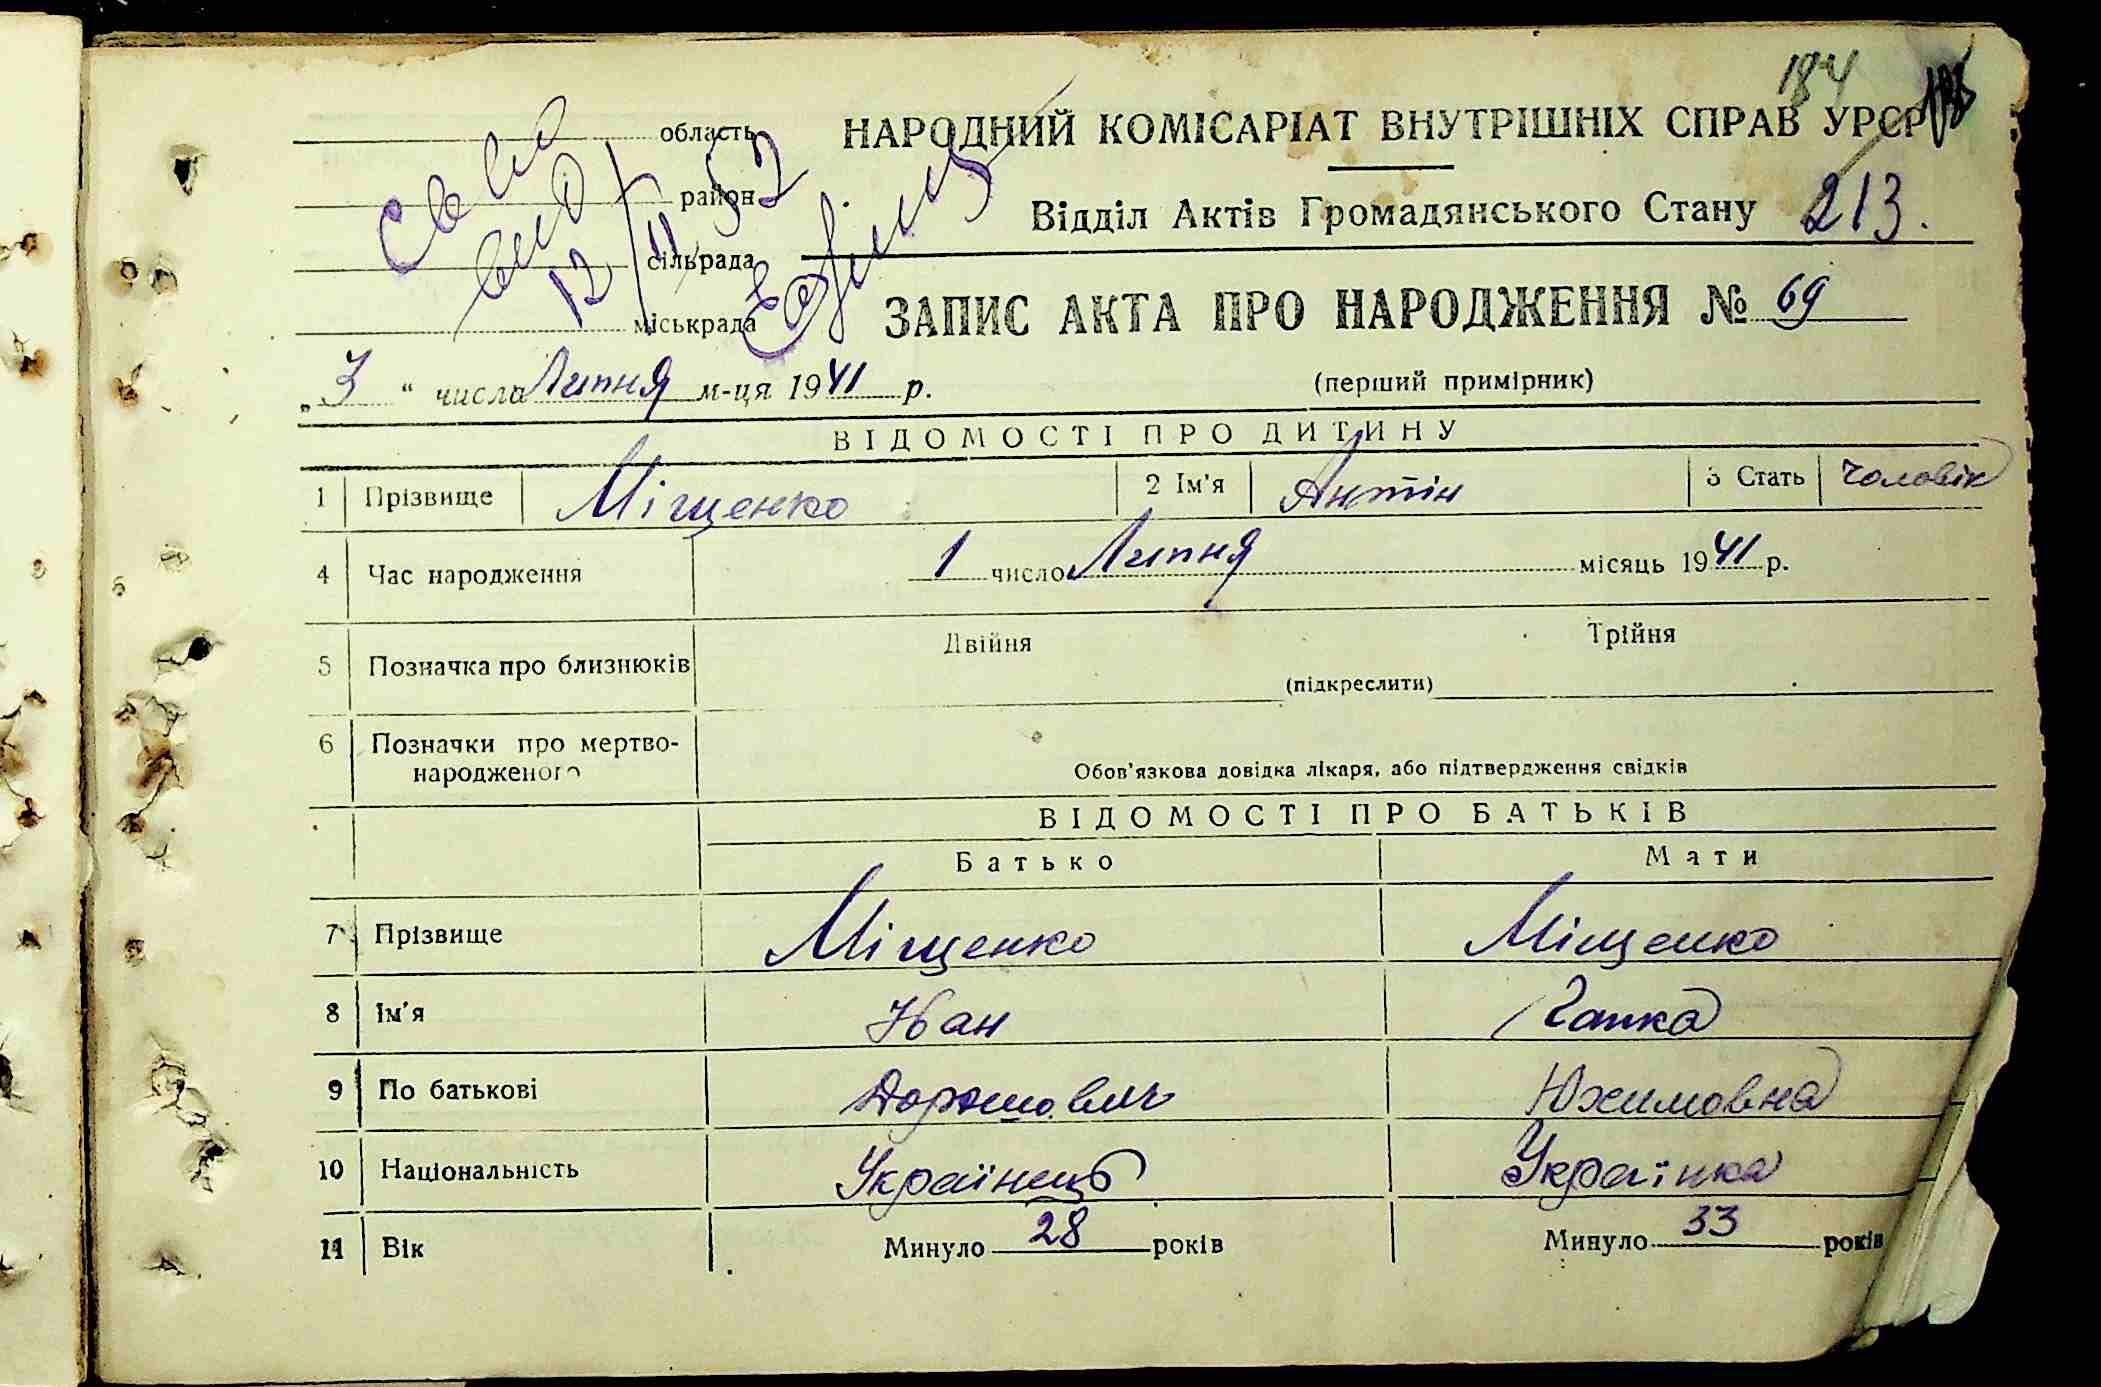 184
область
НАРОДНИЙ КОМІСАРІАТ ВНУТРІШНІХ СПРАВ УРСР
район
Відділ Актів Громадянського Стану 213.
сільрада
міськрада
12/II 52
ЗАПИС АКТА ПРО НАРОДЖЕННЯ № 69
„3“ числа Липня м-ця 1941 р.
(перший примірник)
ВІДОМОСТІ ПРО ДИТИНУ
1 Прізвище Міщенко 2 Ім'я Антін 3 Стать чоловік
4 Час народження 1 число Липня місяць 1941 р.
5 Позначка про близнюків Двійня Трійня
(підкреслити)
6 Позначки про мертво-
народженого Обов'язкова довідка лікаря, або підтвердження свідків
ВІДОМОСТІ ПРО БАТЬКІВ
Батько Мати
7 Прізвище Міщенко Міщенко
8 Ім'я Іван Гапка
9 По батькові Юхимовна
10 Національність Українець Українка
11 Вік Минуло 28 років Минуло 33 років